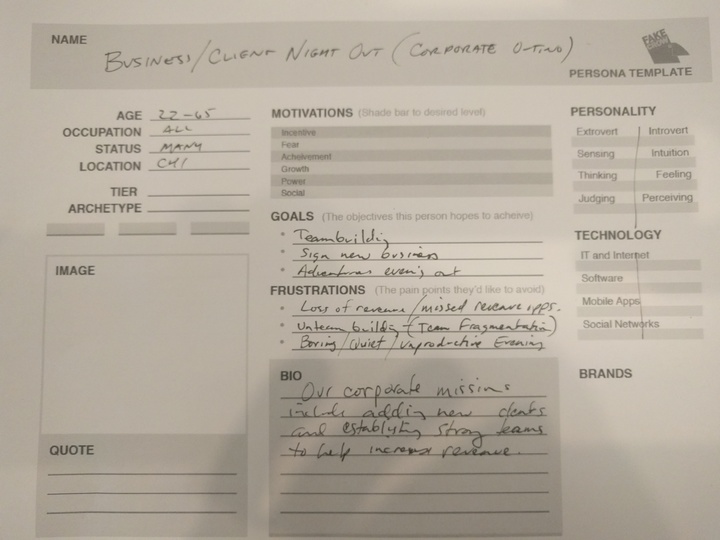 NAME
BUSINESS/CLIENT NIGHT OUT (CORPORATE OUTING)
FAKE
PERSONA TEMPLATE
AGE 22-65
OCCUPATION ALL
STATUS MANY
LOCATION CHI
TIER
ARCHETYPE
IMAGE
QUOTE
MOTIVATIONS (Shade bar to desired level)
Incentive
Fear
Acheivement
Growth
Power
Social
GOALS (The objectives this person hopes to acheive)
Teambuilding
Sign new business
Adventurous evening out
FRUSTRATIONS (The pain points they'd like to avoid)
Loss of revenue/missed revenue opps.
Unteam building (Team Fragmentation)
Boring/Quiet/Unproductive Evening
BIO
Our corporate missions
include adding new clients
and establishing strong teams
to help increase revenue.
PERSONALITY
Extrovert Introvert
Sensing Intuition
Thinking Feeling
Judging Perceiving
TECHNOLOGY
IT and Internet
Software
Mobile Apps
Social Networks
BRANDS